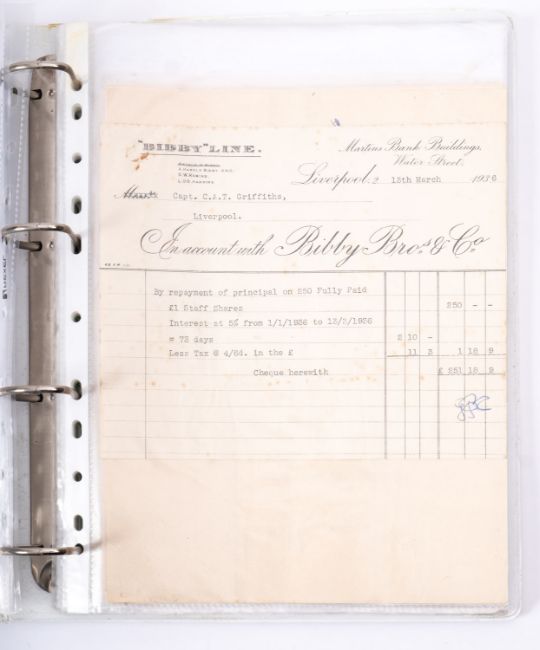 "BIBBY" LINE.
Martins Bank Buildings,
Water Street,
Liverpool, 2 13th March 1936
Capt. C.A.T. Griffiths,
Liverpool.
In account with Bibby Bros. & Co.
By repayment of principal on 250 Fully Paid
£1 Staff Shares 250 - -
Interest at 5% from 1/1/1936 to 13/3/1936
= 72 days 2 10 -
Less Tax @ 4/6d. in the £ 11 3 1 18 9
Cheque herewith £ 251 18 9